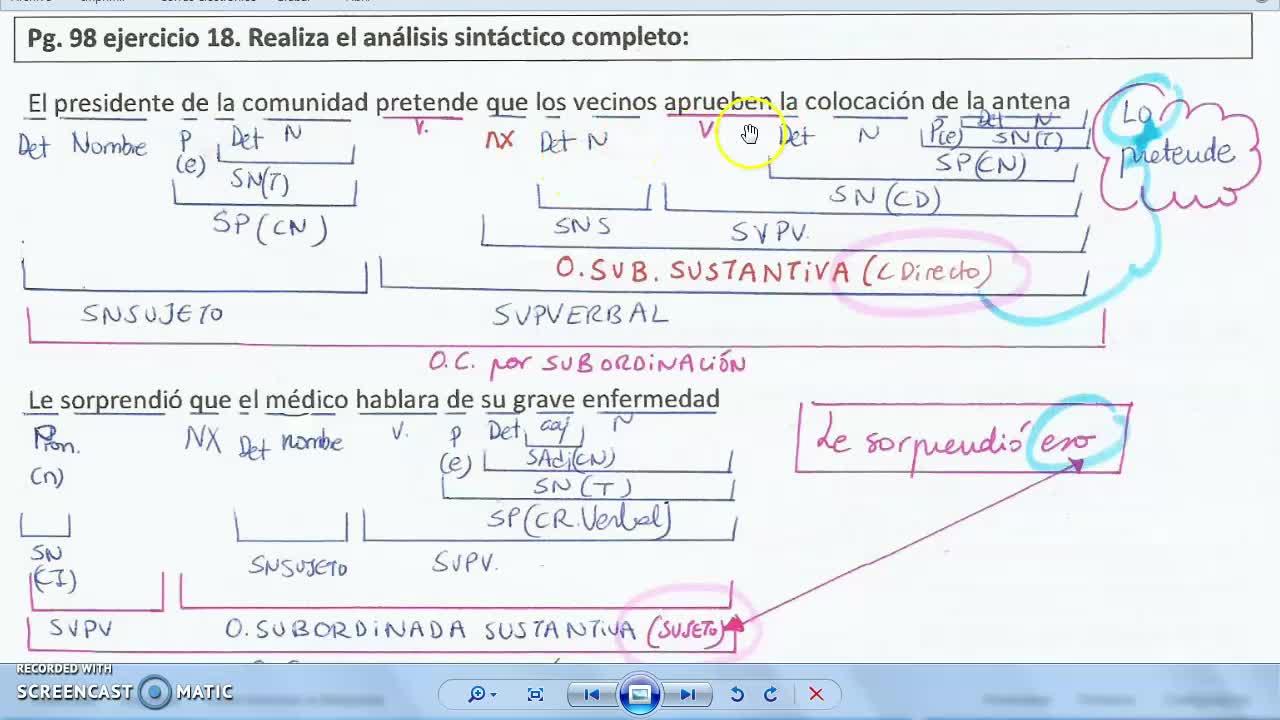 Pg. 98 ejercicio 18. Realiza el análisis sintáctico completo:
El presidente de la comunidad pretende que los vecinos aprueben la colocación de la antena
Det Nombre P Det N V. NX Det N V Det N P(e) Det N
(e) SN(T) SN(T)
SP(CN) SP(CN)
SN(CD)
SNS SVPV.
O. SUB. SUSTANTIVA (CDirecto)
SNSUJETO SVPVERBAL
O.C. por SUBORDINACIÓN
Lo
pretende
Le sorprendió que el médico hablara de su grave enfermedad
Pron. NX Det nombre V. P Det adj N
(n) (e) SAdj(CN)
SN(T)
SP(CR.Verbal)
SN SNSUJETO SVPV.
(CI)
SVPV O. SUBORDINADA SUSTANTIVA (SUJETO)
Le sorprendió eso
RECORDED WITH
SCREENCAST MATIC